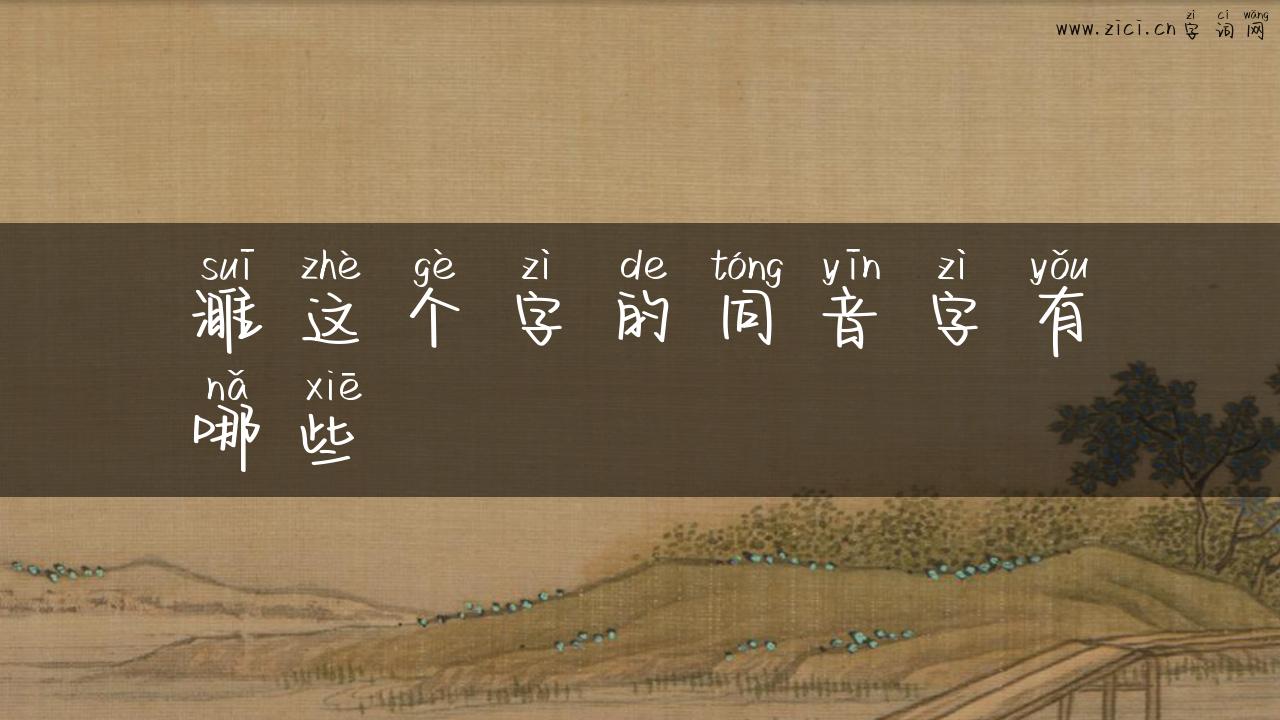 zì cí wǎng
www.zici.cn字词网
suī zhè gè zì de tóng yīn zì yǒu
濉这个字的同音字有
nǎ xiē
哪些